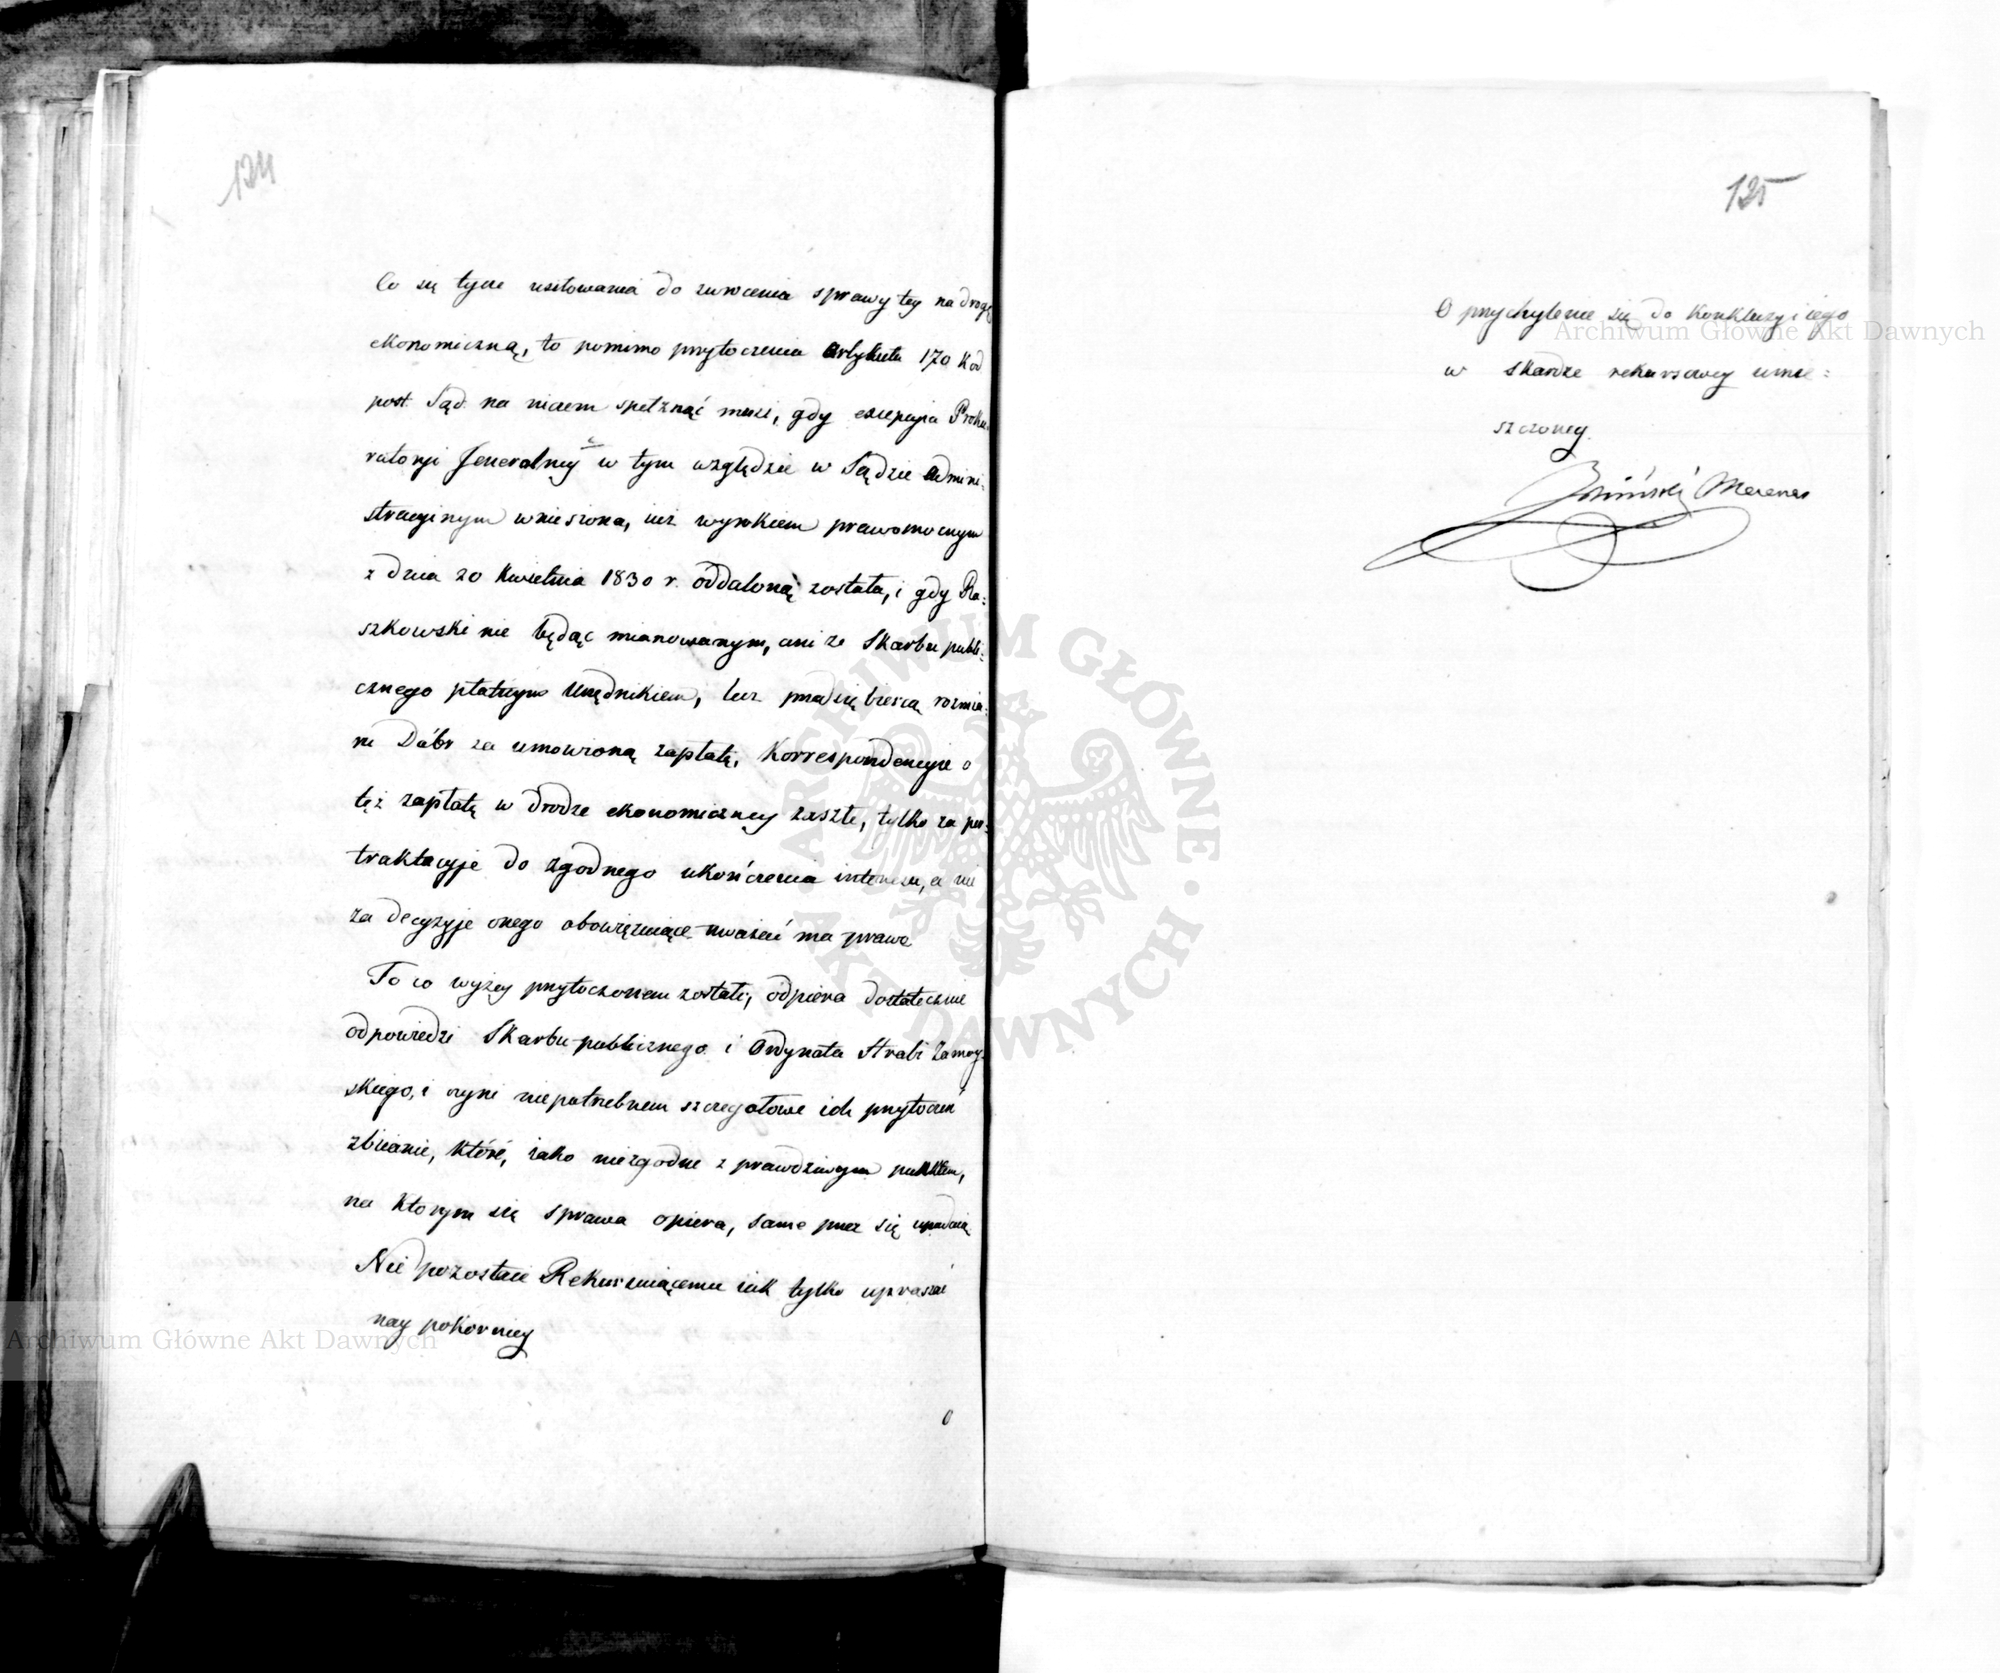 124
Co się tycze usiłowania do zwrócenia sprawy tey na drogę
ekonomiczną, to pomimo przytoczenia Artykułu 170 Kod
post. Sąd. na niczem spełznąć musi, gdy excepcja Proku-
ratoryi Jeneralney w tym względzie w Sądzie Admini-
stracyinym wniesiona, iuż wyrokiem prawomocnym
z dnia 20 Kwietnia 1830 r. oddaloną została, i gdy Ra-
szkowski nie będąc mianowanym, ani ze Skarbu publi-
cznego płatnym Urzędnikiem, lecz przedsiębiercą rozmia-
ru Dóbr za umowioną zapłatę, Korrespondencyie o
też zapłatę w drodze ekonomiczney zaszłe, tylko za per-
traktacyje do zgodnego ukończenia interesu, a nie
za decyzyje onego obowięzuiące uważać ma prawo
To co wyżey przytoczonem zostało, odpiera dostatecznie
odpowiedzi Skarbu publicznego i Ordynata Hrabi Zamoy-
skiego, i czyni niepotrzebnem szczegołowe ich przytoczeń
zbicianie, które, iako niezgodne z prawdziwym punktem,
na ktorym się sprawa opiera, same przez się upadaią
Nie pozostaie Rekurruiącemu iak tylko upraszać
nay pokorniey
O
125
O przychylenie się do Konkluzyi iego
w Skardze rekursowey umie-
szczoney.
Mecenas
Archiwum Główne Akt Dawnych
Archiwum Główne Akt Dawnych
ARCHIWUM GŁÓWNE AKT DAWNYCH